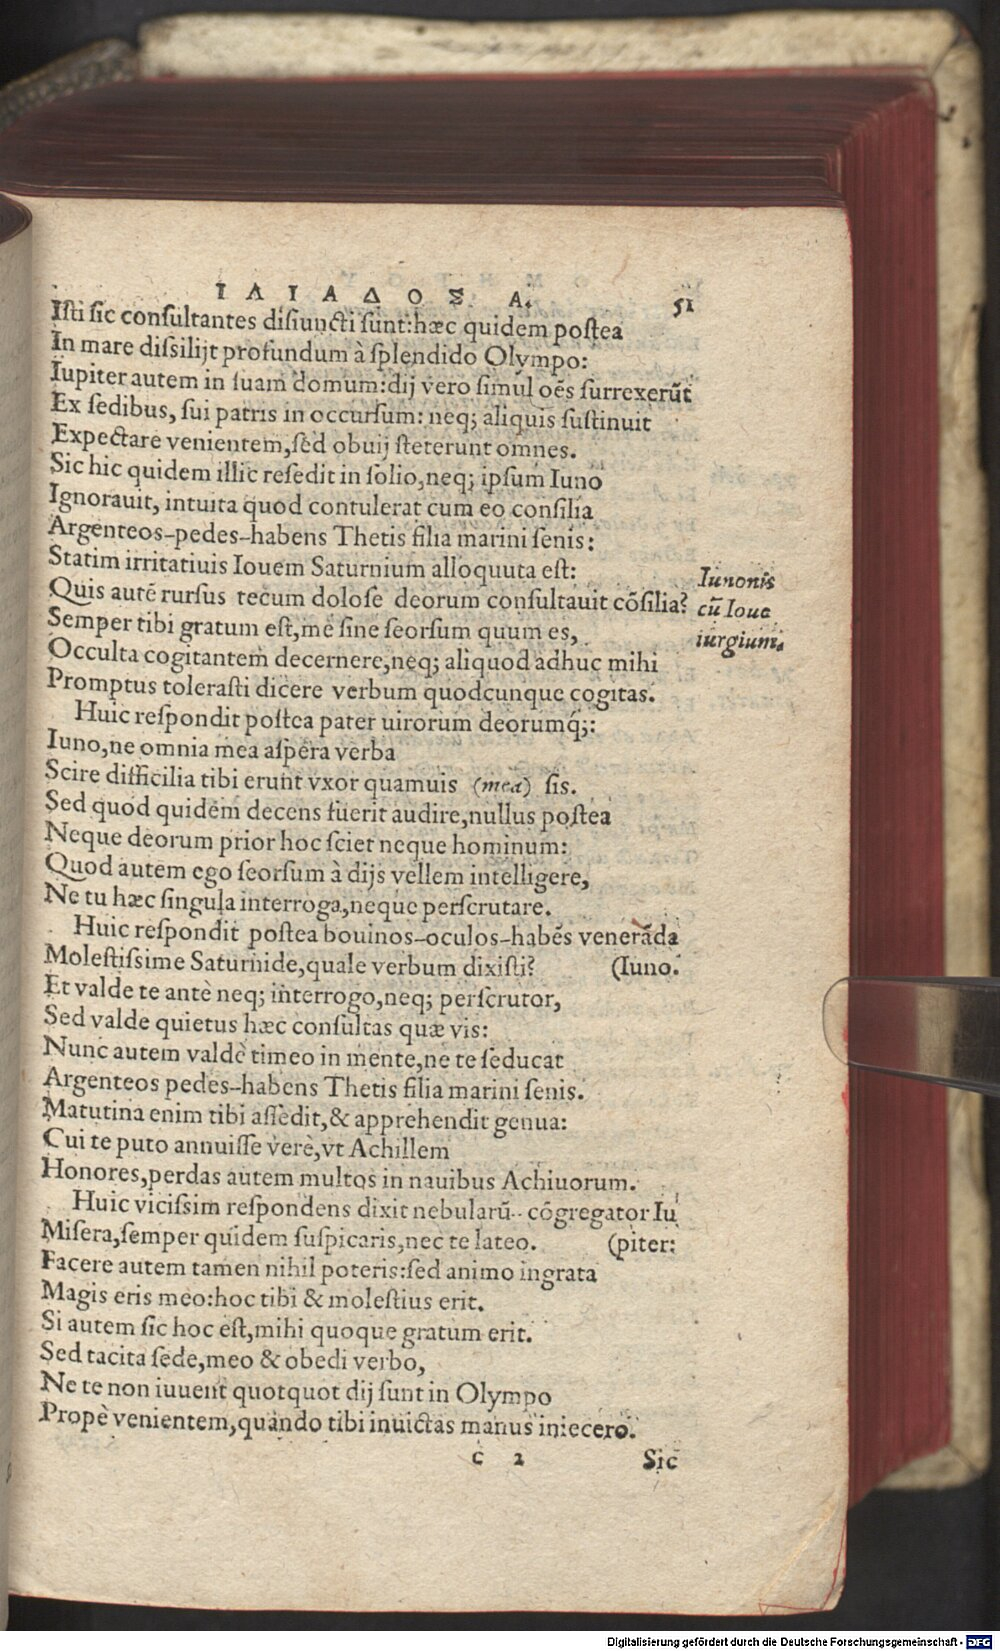 ΙΛΙΑΔΟΣ Α. 51
Iſti ſic conſultantes diſiuncti ſunt:hæc quidem poſtea
In mare diſsilijt profundum à ſplendido Olympo:
Iupiter autem in ſuam domum:dij vero ſimul oẽs ſurrexerũt
Ex ſedibus, ſui patris in occurſum: neq; aliquis ſuſtinuit
Expectare venientem,ſed obuij ſteterunt omnes.
Sic hic quidem illic reſedit in ſolio,neq; ipſum Iuno
Ignorauit, intuita quod contulerat cum eo conſilia
Argenteos-pedes-habens Thetis filia marini ſenis:
Statim irritatiuis Iouem Saturnium alloquuta eſt:
Quis autẽ rurſus tecum doloſe deorum conſultauit cõſilia?
Semper tibi gratum eſt,me ſine ſeorſum quum es,
Occulta cogitantem decernere,neq; aliquod adhuc mihi
Promptus toleraſti dicere verbum quodcunque cogitas.
Iunonis
cũ Ioue
iurgium.
Huic reſpondit poſtea pater uirorum deorumq́;:
Iuno,ne omnia mea aſpera verba
Scire difficilia tibi erunt vxor quamuis (mea) ſis.
Sed quod quidem decens fuerit audire,nullus poſtea
Neque deorum prior hoc ſciet neque hominum:
Quod autem ego ſeorſum à dijs vellem intelligere,
Ne tu hæc ſingula interroga,neque perſcrutare.
Huic reſpondit poſtea bouinos-oculos-habẽs venerãda
Moleſtiſsime Saturnide,quale verbum dixiſti? (Iuno.
Et valde te antè neq; interrogo,neq; perſcrutor,
Sed valde quietus hæc conſultas quæ vis:
Nunc autem valdè timeo in mente,ne te ſeducat
Argenteos pedes-habens Thetis filia marini ſenis.
Matutina enim tibi aſſedit,& apprehendit genua:
Cui te puto annuiſſe verè,vt Achillem
Honores,perdas autem multos in nauibus Achiuorum.
Huic viciſsim reſpondens dixit nebularũ-cõgregator Iu
Miſera,ſemper quidem ſuſpicaris,nec te lateo. (piter:
Facere autem tamen nihil poteris:ſed animo ingrata
Magis eris meo:hoc tibi & moleſtius erit.
Si autem ſic hoc eſt,mihi quoque gratum erit.
Sed tacita ſede,meo & obedi verbo,
Ne te non iuuent quotquot dij ſunt in Olympo
Propè venientem,quando tibi inuictas manus iniecero.
c 2 Sic
Digitalisierung gefördert durch die Deutsche Forschungsgemeinschaft - DFG